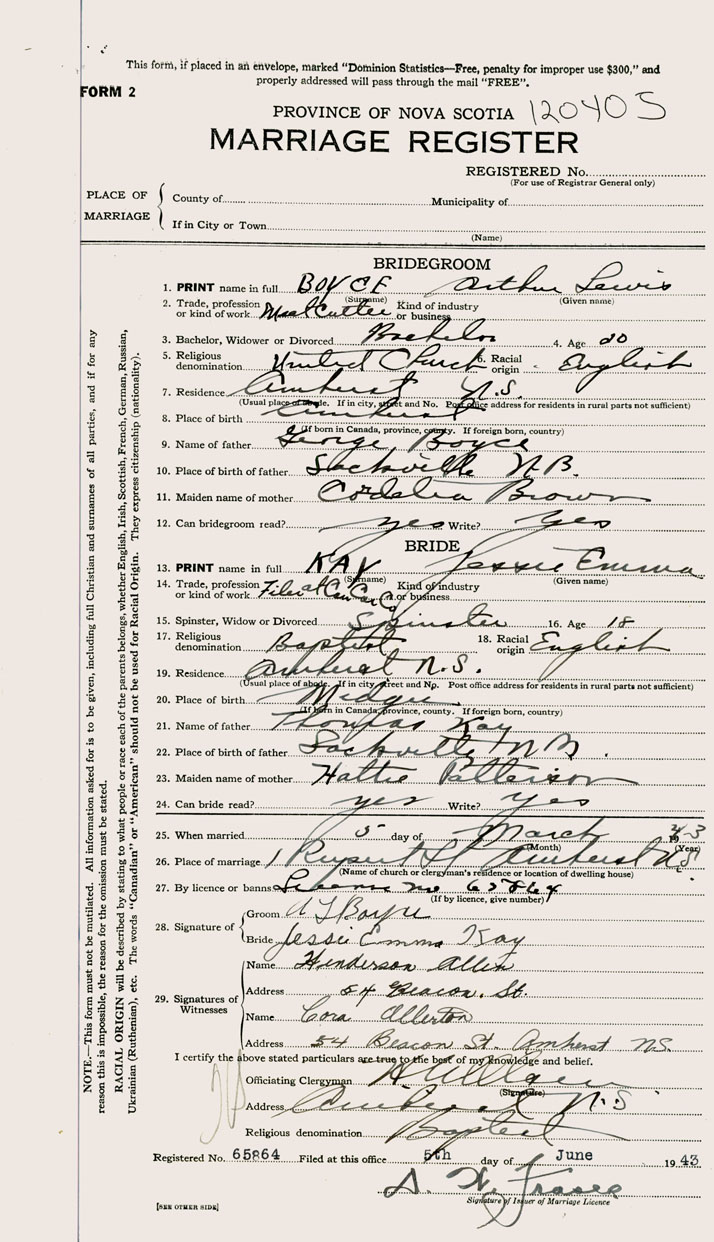 This form, if placed in an envelope, marked "Dominion Statistics—Free, penalty for improper use $300," and
properly addressed will pass through the mail "FREE".
FORM 2
PROVINCE OF NOVA SCOTIA 120405
MARRIAGE REGISTER
REGISTERED No.
(For use of Registrar General only)
PLACE OF MARRIAGE
County of Municipality of
If in City or Town
(Name)
BRIDEGROOM
1. PRINT name in full BOYCE Arthur Lewis
(Surname) (Given name)
2. Trade, profession or kind of work Meat Cutter Kind of industry or business
3. Bachelor, Widower or Divorced Bachelor 4. Age 20
5. Religious denomination United Church 6. Racial origin English
7. Residence Amherst N.S.
(Usual place of abode. If in city, street and No. Post office address for residents in rural parts not sufficient)
8. Place of birth Amherst
(If born in Canada, province, county. If foreign born, country)
9. Name of father George Boyce
10. Place of birth of father Sackville N.B.
11. Maiden name of mother Cordelia Brown
12. Can bridegroom read? yes Write? yes
BRIDE
13. PRINT name in full KAY Jessie Emma
(Surname) (Given name)
14. Trade, profession or kind of work Kind of industry or business
15. Spinster, Widow or Divorced Spinster 16. Age 18
17. Religious denomination Baptist 18. Racial origin English
19. Residence Amherst N.S.
(Usual place of abode. If in city, street and No. Post office address for residents in rural parts not sufficient)
20. Place of birth Midgic
(If born in Canada, province, county. If foreign born, country)
21. Name of father Thomas Kay
22. Place of birth of father Sackville N.B.
23. Maiden name of mother Hattie Patterson
24. Can bride read? yes Write? yes
25. When married 5 day of March 43
(Month) (Year)
26. Place of marriage 1 Rupert St Amherst N.S.
(Name of church or clergyman's residence or location of dwelling house)
27. By licence or banns License no 65864
(If by licence, give number)
28. Signature of
Groom A L Boyce
Bride Jessie Emma Kay
29. Signatures of Witnesses
Name Henderson Allen
Address 54 Beacon. St.
Name Cora Allerton
Address 54 Beacon St. Amherst N.S.
I certify the above stated particulars are true to the best of my knowledge and belief.
Officiating Clergyman
(Signature)
Address Amherst N.S
Religious denomination Baptist
Registered No. 65864 Filed at this office 5th day of June 1943
Signature of Issuer of Marriage Licence
[SEE OTHER SIDE]
NOTE.—This form must not be mutilated. All information asked for is to be given, including full Christian and surnames of all parties, and if for any
reason this is impossible, the reason for the omission must be stated.
RACIAL ORIGIN will be described by stating to what people or race each of the parents belongs, whether English, Irish, Scottish, French, German, Russian,
Ukrainian (Ruthenian), etc. The words "Canadian" or "American" should not be used for Racial Origin. They express citizenship (nationality).